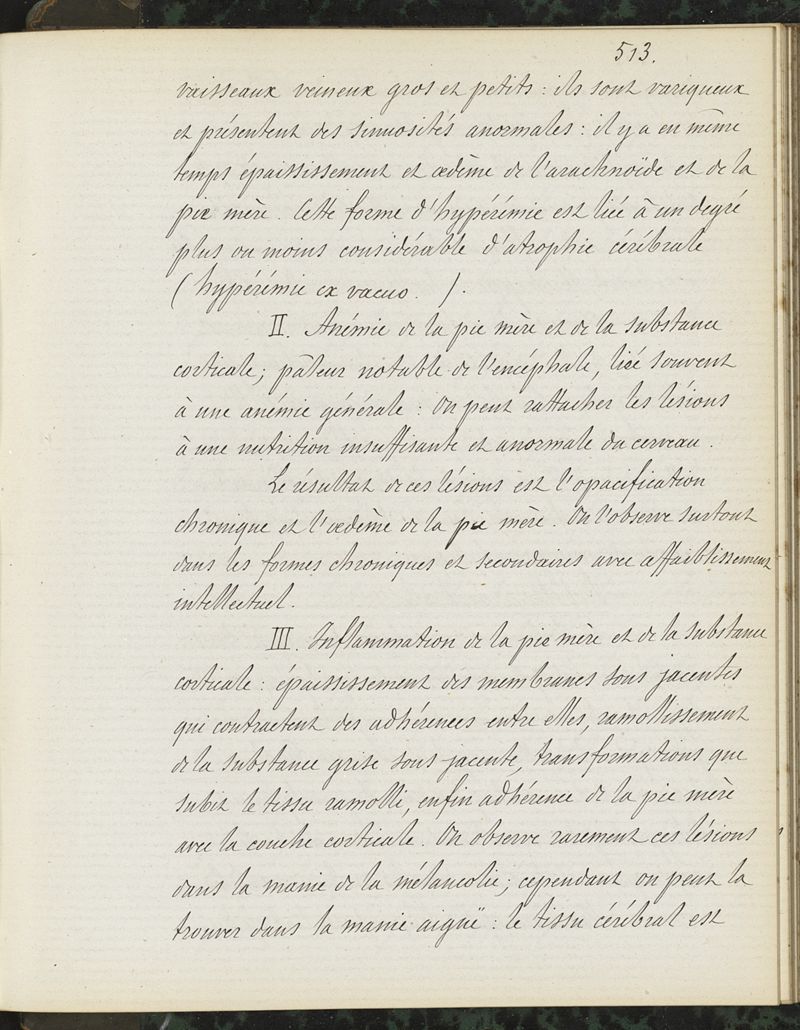 513.
vaisseaux veineux gros et petits : ils sont variqueux
et présentent des sinuosités anormales : il y a en même
temps épaississement et œdème de l'arachnoïde et de la
pie mère. Cette forme d'hypérémie est liée à un degré
plus ou moins considérable d'atrophie cérébrale
(hypérémie ex vacuo. ).
II. Anémie de la pie mère et de la substance
corticale ; pâleur notable de l'encéphale, liée souvent
à une anémie générale : On peut rattacher les lésions
à une nutrition insuffisante et anormale du cerveau.
Le résultat de ces lésions est l'opacification
chronique et l'œdème de la pie mère. On l'observe surtout
dans les formes chroniques et secondaires avec affaiblissement
intellectuel.
III. Inflammation de la pie mère et de la substance
corticale : épaississement des membranes sous jacentes
qui contractent des adhérences entre elles, ramollissement
de la substance grise sous jacente, transformations que
subit le tissu ramolli, enfin adhérence de la pie mère
avec la couche corticale. On observe rarement ces lésions
dans la manie de la mélancolie ; cependant on peut la
trouver dans la manie aiguë : le tissu cérébral est